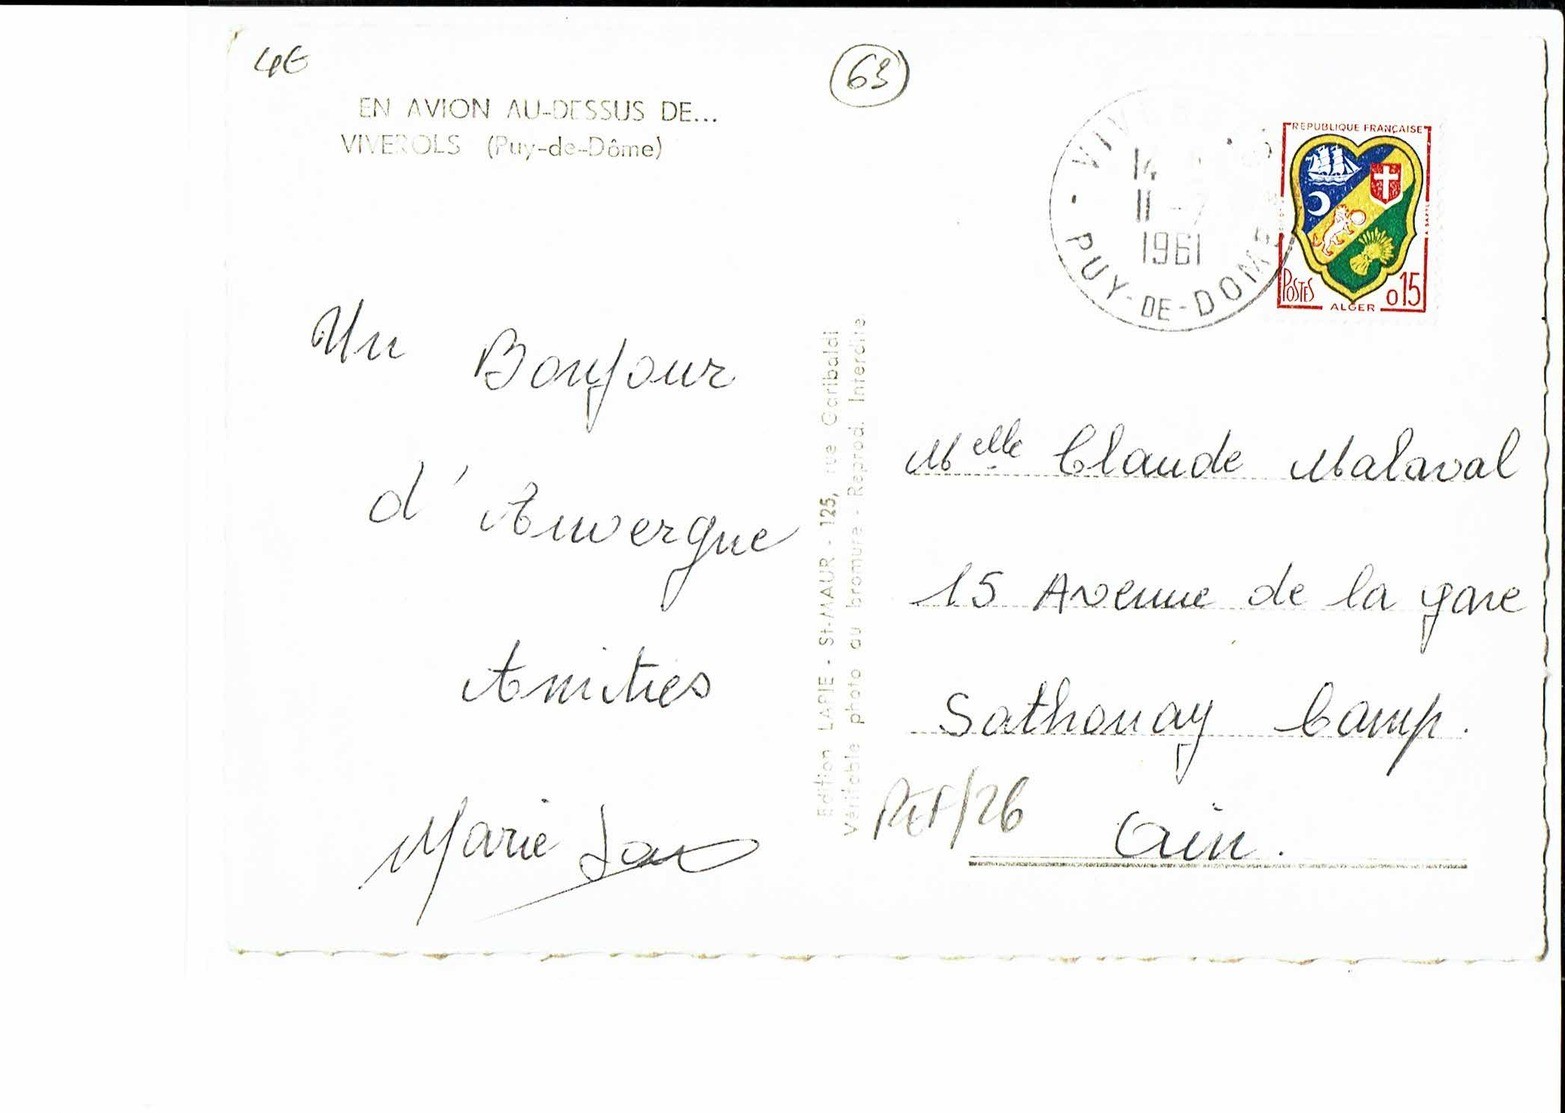 4€
63
EN AVION AU-DESSUS DE...
VIVEROLS (Puy-de-Dôme)
VIV
14
11 - 7
1961
- PUY-DE-DOME
REPUBLIQUE FRANÇAISE
POSTES
ALGER
0,15
Un Bonjour
d'Auvergne
Amitiés
Marie
Edition LAPIE - St-MAUR - 125, rue Garibaldi
Véritable photo au bromure - Reprod. Interdite
Melle Claude Malaval
15 Avenue de la gare
Sathonay Camp.
Ain.